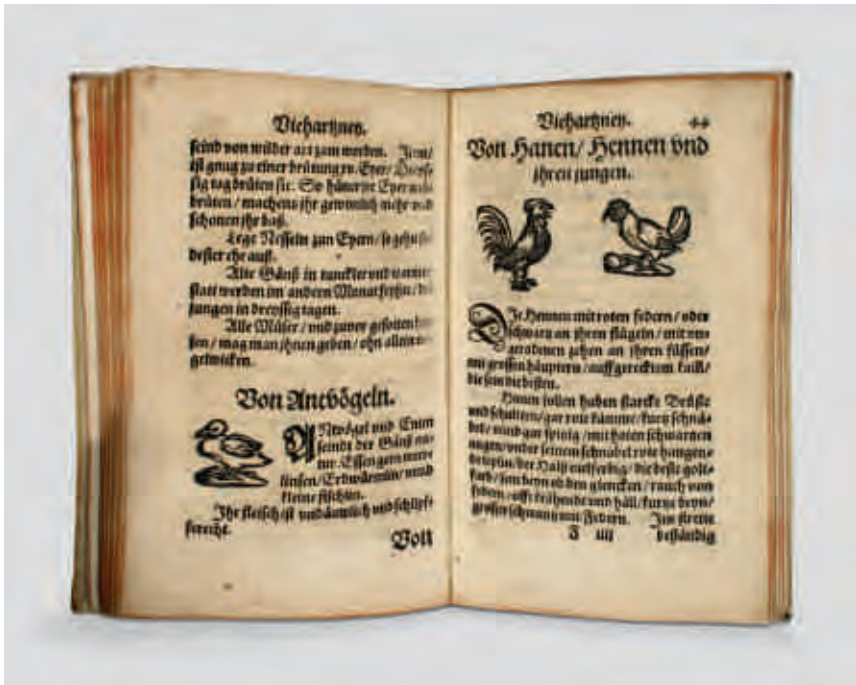 Viehartzney.
seind von wilder art zam worden. Item/
ist gnug zu einer brütung 15. Eyer/ Dreys-
sig tag brüten sie. So hüner ire Eyer
brüten/ machens ihr gewonlich mehr vnd
schonen ihr baß.
Lege Nesseln zun Eyern/ so gehn sie
desster ehe auß.
Alte Gänß in tunckler vnd warmer
statt werden im andern Monat feyßt/ die
jungen in dreyssig tagen.
Alle Müser/ vnd zuvor gesotten
sen/ mag man ihnen geben/ ohn allein
gelwicken.
Von Antvögeln.
ANtvögel vnd Enten
seindt der Gänß na-
tur. Essen gern meer-
linsen/ Erdwürmlin/ vnnd
kleine fischlin.
Ihr fleisch ist vndäuwlich vnd schlipf-
ferecht.
Von
Viehartzney. 44
Von Hanen/ Hennen vnd
ihren jungen.
DJe Hennen mit roten federn/ oder
schwartz an ihren flügeln/ mit vn-
geradenen zehen an ihren füssen/
mit grossen häuptern/ auffgerecktem kalk/
die sein die besten.
Hanen sollen haben starcke Brüste
vnd schultern/ gar rote kämme/ kurtz schnä-
bel/ vnnd gar spitzig/ mit haren schwartzen
augen/ vnder seinem schnabel rote hangen-
de der Halß entferbig/ die beste golt-
farb/ sein beyn ob den glencken/ rauch von
federn/ offt krähendt vnd häll/ kurtze beyn/
grosser schwantz mit Federn. Im streite
J iiij beständig